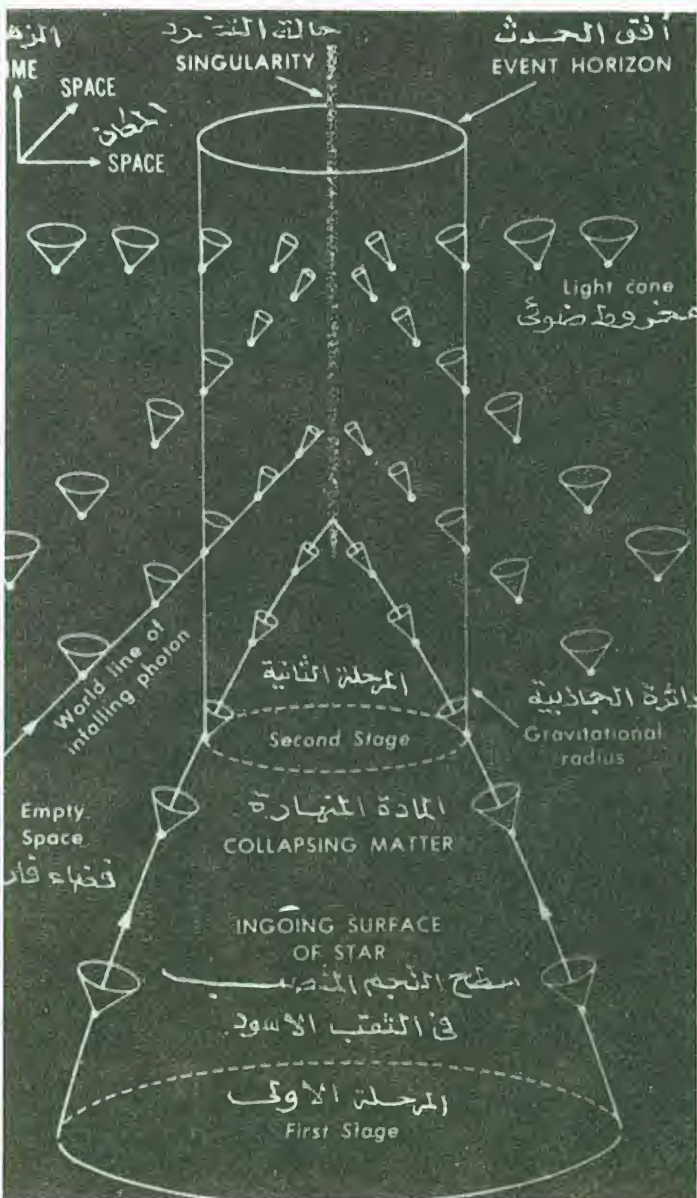 حالة التفرد
أفق الحدث
IME
SINGULARITY
EVENT HORIZON
SPACE
المكان
SPACE
Light cone
مخروط ضوئى
World line of
infalling photon
المرحلة الثانية
Second Stage
دائرة الجاذبية
Gravitational
radius
Empty
Space
فضاء
المادة المنهارة
COLLAPSING MATTER
INGOING SURFACE
OF STAR
سطح النجم المنصب
فى الثقب الاسود
المرحلة الاولى
First Stage